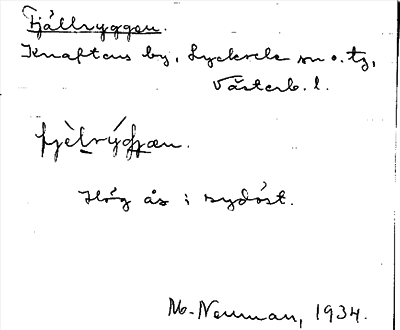 Fjällryggen.
Knaftens by, Lycksele sn o. tg,
Västerb. l.
fjèlrýg̀gæn.
Hög ås i sydost.
Mb. Neuman, 1934.